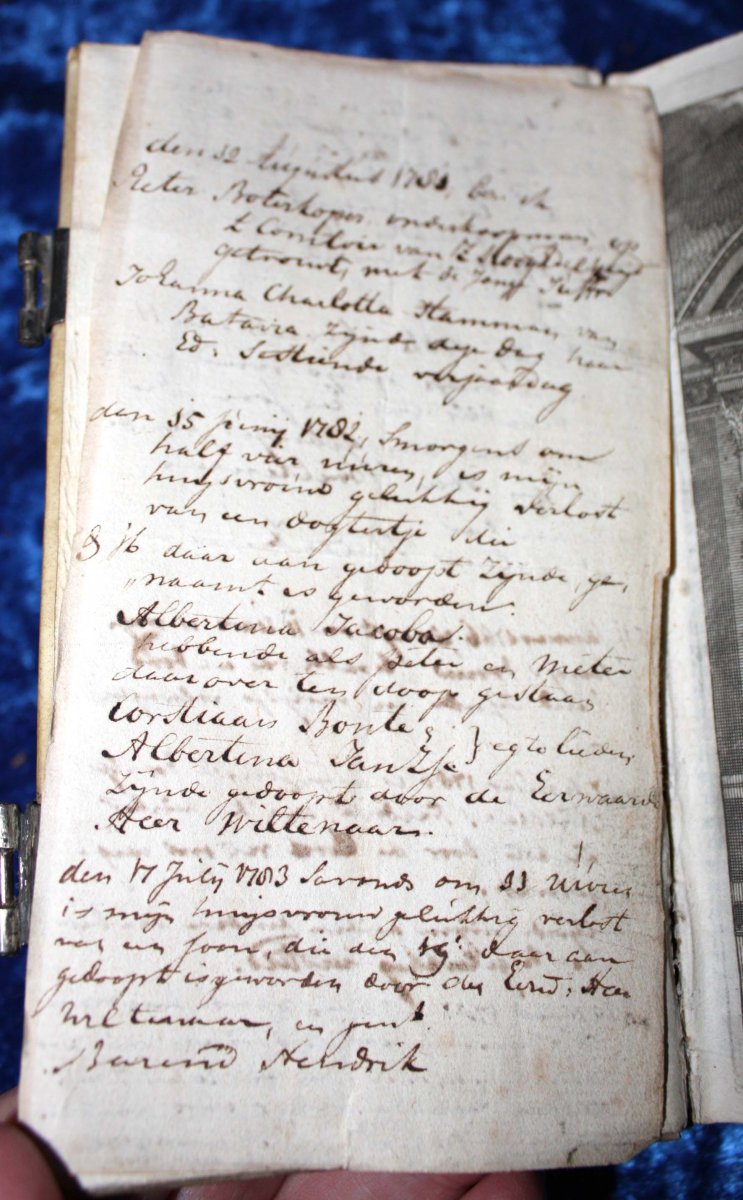 den 12 Augustus 1781, ben ik
Pieter Boterkoper onderkoopman op
't Comtoir van
getrouwt, met de Jong Juffr
Johanna Charlotta Hamman van
Batavia zijnde deze dag haar
Ed: Sestiende verjaardag
den 15 Junij 1782, smorgens om
half vier uuren, is mijn
huijsvrouw gelukkig verlost
van een dogtertje die
16 daar aan gedoopt zijnde, ge,
„naamt is geworden.
Albertina Jacoba.
hebbende als peter en meter
daar over ten doop gestaan
Corstiaan Bonte &
Albertina Jantze } egte lieden
zijnde gedoopt door de Eerwaarde
Heer Wiltenaar.
den 17 Julij 1783 savonds om 11 uuren
is mijn huijsvrouw gelukkig verlost
van een soon, die den 19: daar aan
gedoopt is geworden door den Eerw: Heer
Wiltenaar, en gent.
Barend Hendrik